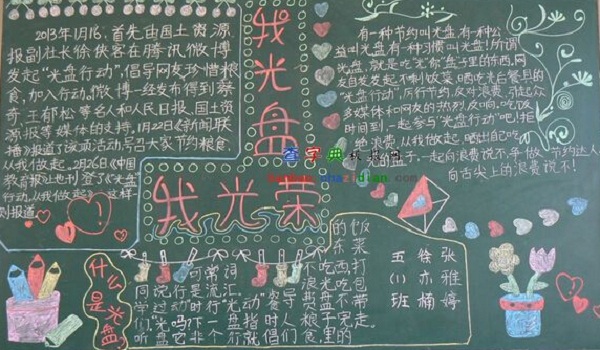 2013年1月16,首先由国土资源
报副社长徐侠客在腾讯微博
发起"光盘行动",倡导网友珍惜粮
食,加入行动。微博一经发布得到蔡
奇、王郁松等名人和人民日报、国土资
源报等媒体的支持。1月22日《新闻联
播》报道了该项活动,号召大家节约粮食,
从我做起,2月26日《中国
教育报》社也刊登了《"光盘"
行动,从我做起》这样一
则报道
我光盘
我光荣
有一种节约叫光盘,有一种公
益叫光盘,有一种习惯叫光盘!所谓
光盘,就是吃光你盘子里的东西,网
友自发发起不剩饭菜,晒吃光白餐具的
"光盘行动",厉行节约,反对浪费,引起众
多媒体和网友的热烈反响。吃饭
时间到,一起参与"光盘行动"吧!拒
绝浪费,从我做起,晒出自己吃
光的盘子,一起向浪费说不,争做节约达人,
向舌尖上的浪费说不!
查字典教案网
jiaoan.chazidian.com
什么是光盘?
同学们,听
说过"光盘"
行动吗?它
可是时下非
常流行一个
词汇。"光盘
行动"就
是指
倡导
人们
不浪费粮食,
吃光盘子里的
东西,吃不完的
饭菜打包带走。
五(1)班
徐亦楠
张雅婷